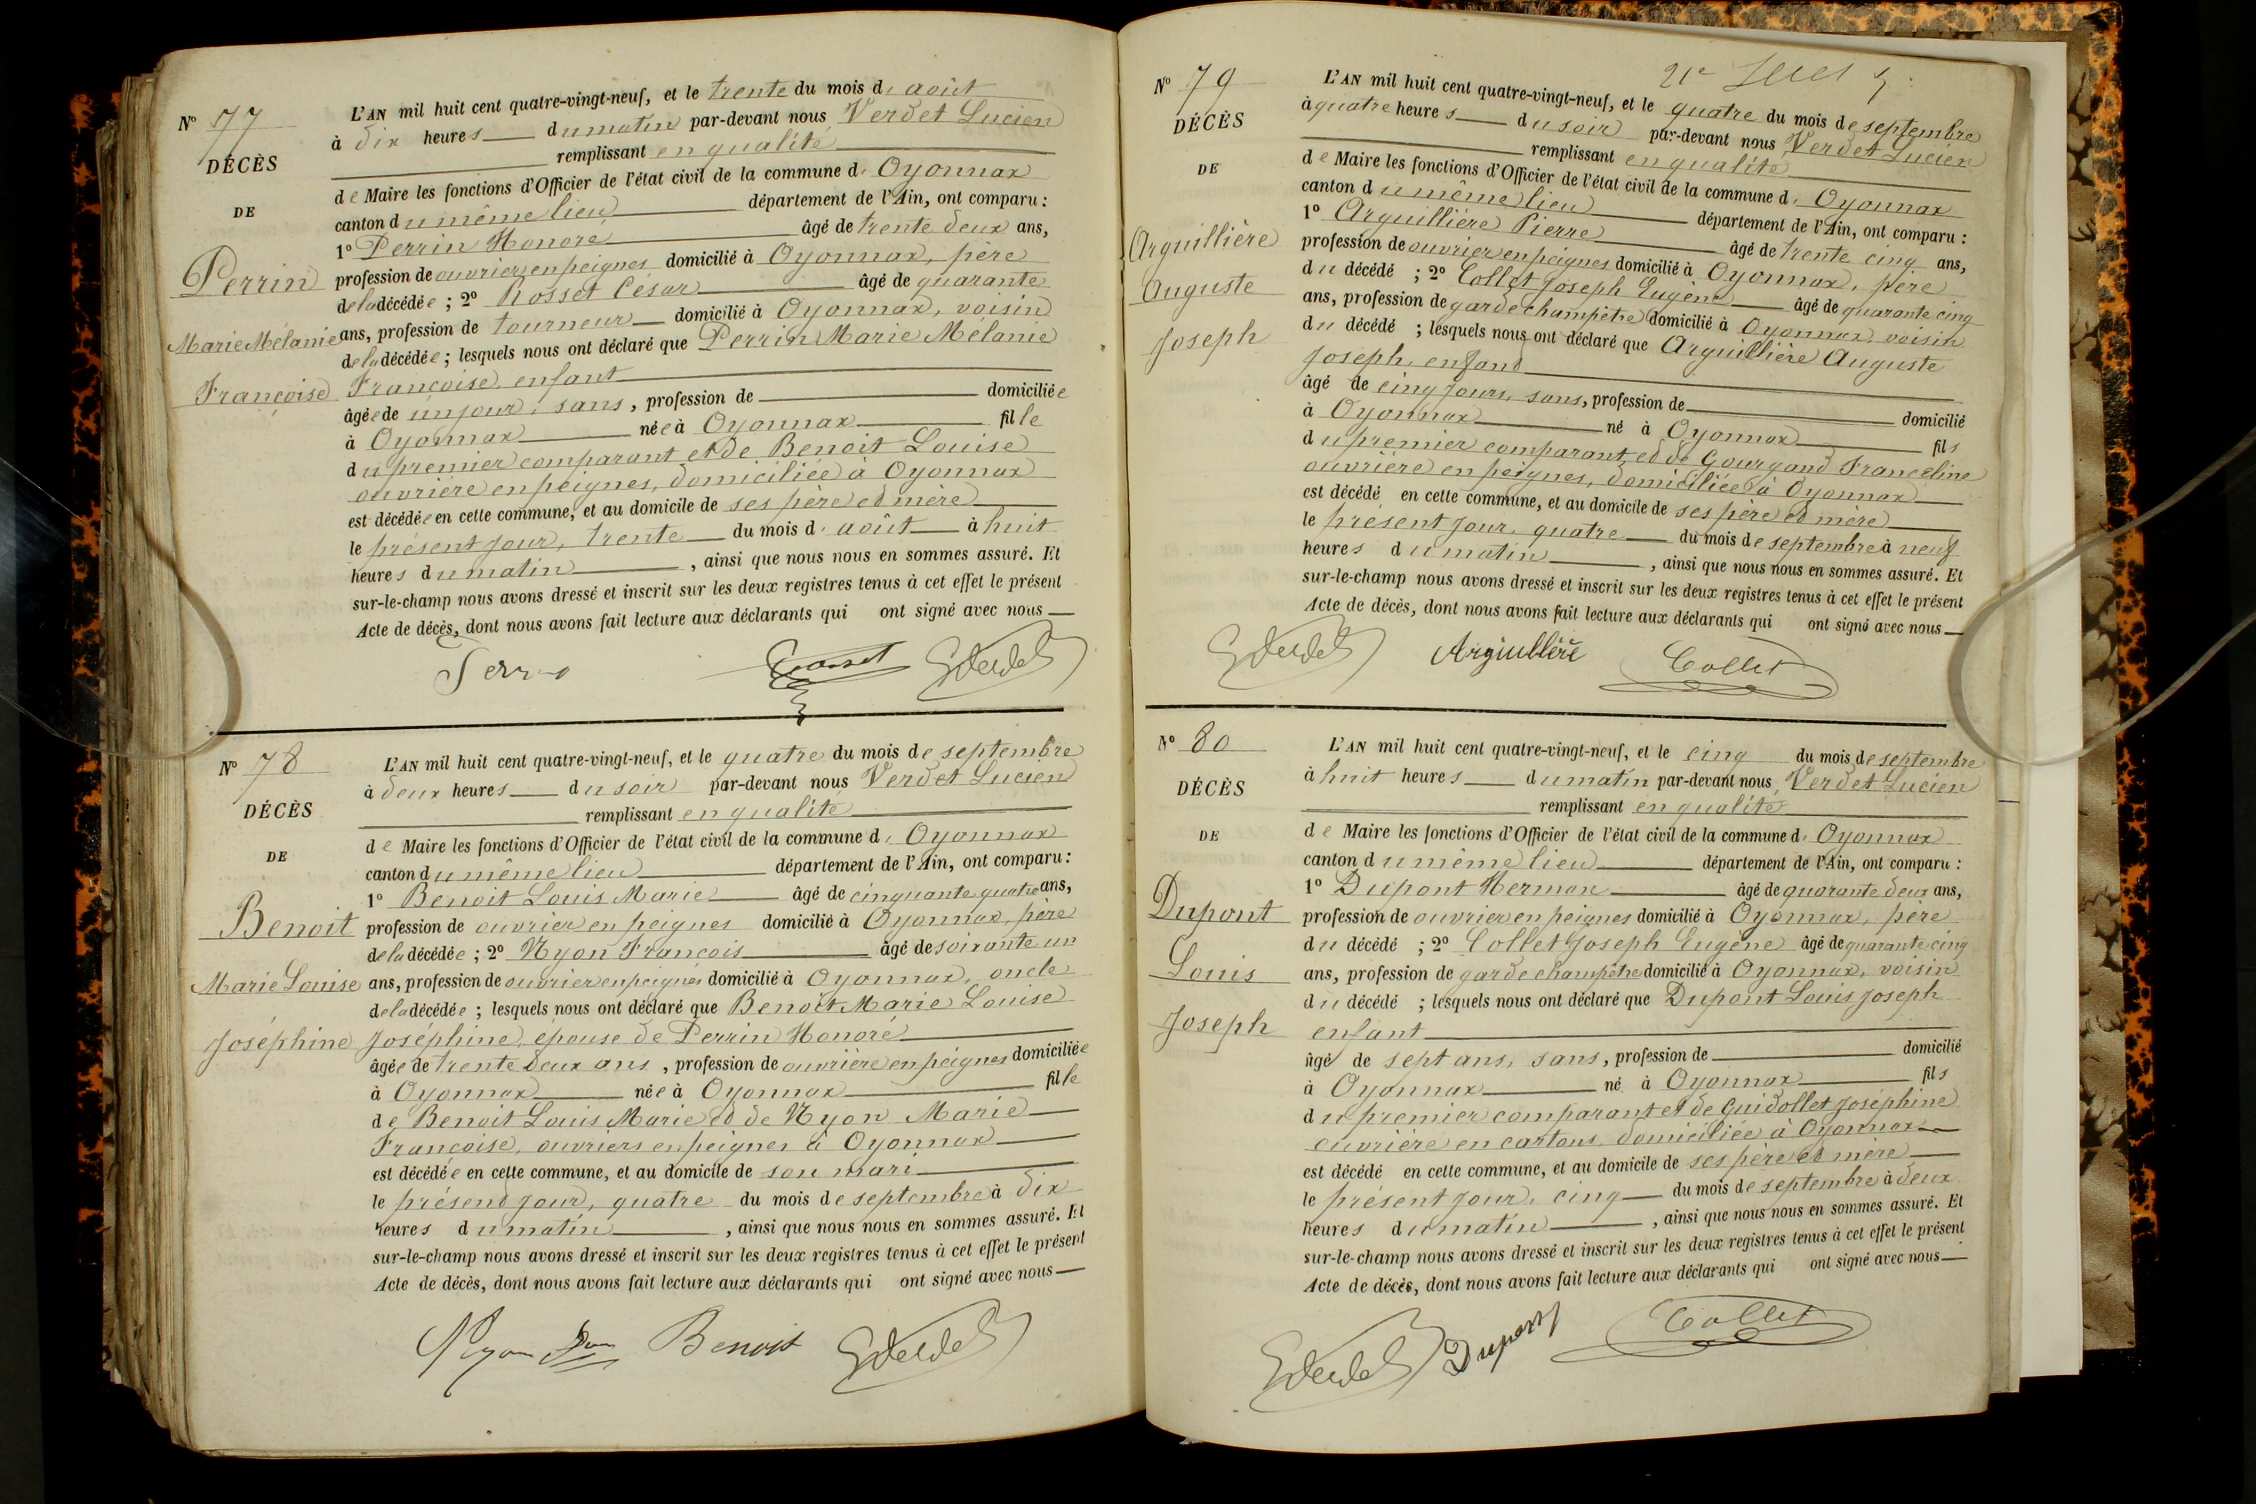 N° 77
DÉCÈS
DE
Perrin
Marie Mélanie
Françoise
L'AN mil huit cent quatre-vingt-neuf, et le trente du mois d' août
à dix heures du matin par-devant nous Verdet Lucien
remplissant en qualité
de Maire les fonctions d'Officier de l'état civil de la commune d' Oyonnax
canton du même lieu département de l'Ain, ont comparu :
1° Perrin Honoré âgé de trente deux ans,
profession de ouvrier en peignes domicilié à Oyonnax, père
de la décédée ; 2° Rosset César âgé de quarante
ans, profession de tourneur domicilié à Oyonnax, voisin
de la décédée ; lesquels nous ont déclaré que Perrin Marie Mélanie
Françoise, enfant
âgée de un jour, sans, profession de domiciliée
à Oyonnax née à Oyonnax fille
du premier comparant et de Benoit Louise
ouvrière en peignes, domiciliée à Oyonnax
est décédée en cette commune, et au domicile de ses père et mère
le présent jour, trente du mois d' août à huit
heures du matin, ainsi que nous nous en sommes assuré. Et
sur-le-champ nous avons dressé et inscrit sur les deux registres tenus à cet effet le présent
Acte de décès, dont nous avons fait lecture aux déclarants qui ont signé avec nous
Perrin Rosset Verdet
N° 78
DÉCÈS
DE
Benoit
Marie Louise
Joséphine
L'AN mil huit cent quatre-vingt-neuf, et le quatre du mois de septembre
à deux heures du soir par-devant nous Verdet Lucien
remplissant en qualité
de Maire les fonctions d'Officier de l'état civil de la commune d' Oyonnax
canton du même lieu département de l'Ain, ont comparu :
1° Benoit Louis Marie âgé de cinquante quatre ans,
profession de ouvrier en peignes domicilié à Oyonnax, père
de la décédée ; 2° Nyon François âgé de soixante un
ans, profession de ouvrier en peignes domicilié à Oyonnax, oncle
de la décédée ; lesquels nous ont déclaré que Benoit Marie Louise
Joséphine, épouse de Perrin Honoré
âgée de trente deux ans, profession de ouvrière en peignes domiciliée
à Oyonnax née à Oyonnax fille
de Benoit Louis Marie et de Nyon Marie
Françoise, ouvriers en peignes à Oyonnax
est décédée en cette commune, et au domicile de son mari
le présent jour, quatre du mois de septembre à dix
heures du matin, ainsi que nous nous en sommes assuré. Et
sur-le-champ nous avons dressé et inscrit sur les deux registres tenus à cet effet le présent
Acte de décès, dont nous avons fait lecture aux déclarants qui ont signé avec nous
Nyon Benoit Verdet
N° 79
DÉCÈS
DE
Arguillière
Auguste
Joseph
L'AN mil huit cent quatre-vingt-neuf, et le quatre du mois de septembre
à quatre heures du soir par-devant nous Verdet Lucien
remplissant en qualité
de Maire les fonctions d'Officier de l'état civil de la commune d' Oyonnax
canton du même lieu département de l'Ain, ont comparu :
1° Arguillière Pierre âgé de trente cinq ans,
profession de ouvrier en peignes domicilié à Oyonnax, père
du décédé ; 2° Collet Joseph Eugène âgé de quarante cinq
ans, profession de garde champêtre domicilié à Oyonnax, voisin
du décédé ; lesquels nous ont déclaré que Arguillière Auguste
Joseph, enfant
âgé de cinq jours, sans, profession de domicilié
à Oyonnax né à Oyonnax fils
du premier comparant et de Gourgand Franceline
ouvrière en peignes, domiciliée à Oyonnax
est décédé en cette commune, et au domicile de ses père et mère
le présent jour, quatre du mois de septembre à neuf
heures du matin, ainsi que nous nous en sommes assuré. Et
sur-le-champ nous avons dressé et inscrit sur les deux registres tenus à cet effet le présent
Acte de décès, dont nous avons fait lecture aux déclarants qui ont signé avec nous
Verdet Arguillière Collet
N° 80
DÉCÈS
DE
Dupont
Louis
Joseph
L'AN mil huit cent quatre-vingt-neuf, et le cinq du mois de septembre
à huit heures du matin par-devant nous Verdet Lucien
remplissant en qualité
de Maire les fonctions d'Officier de l'état civil de la commune d' Oyonnax
canton du même lieu département de l'Ain, ont comparu :
1° Dupont Herman âgé de quarante deux ans,
profession de ouvrier en peignes domicilié à Oyonnax, père
du décédé ; 2° Collet Joseph Eugène âgé de quarante cinq
ans, profession de garde champêtre domicilié à Oyonnax, voisin
du décédé ; lesquels nous ont déclaré que Dupont Louis Joseph
enfant
âgé de sept ans, sans, profession de domicilié
à Oyonnax né à Oyonnax fils
du premier comparant et de Guidollet Joséphine
ouvrière en cartons, domiciliée à Oyonnax
est décédé en cette commune, et au domicile de ses père et mère
le présent jour, cinq du mois de septembre à deux
heures du matin, ainsi que nous nous en sommes assuré. Et
sur-le-champ nous avons dressé et inscrit sur les deux registres tenus à cet effet le présent
Acte de décès, dont nous avons fait lecture aux déclarants qui ont signé avec nous
Verdet Dupont Collet